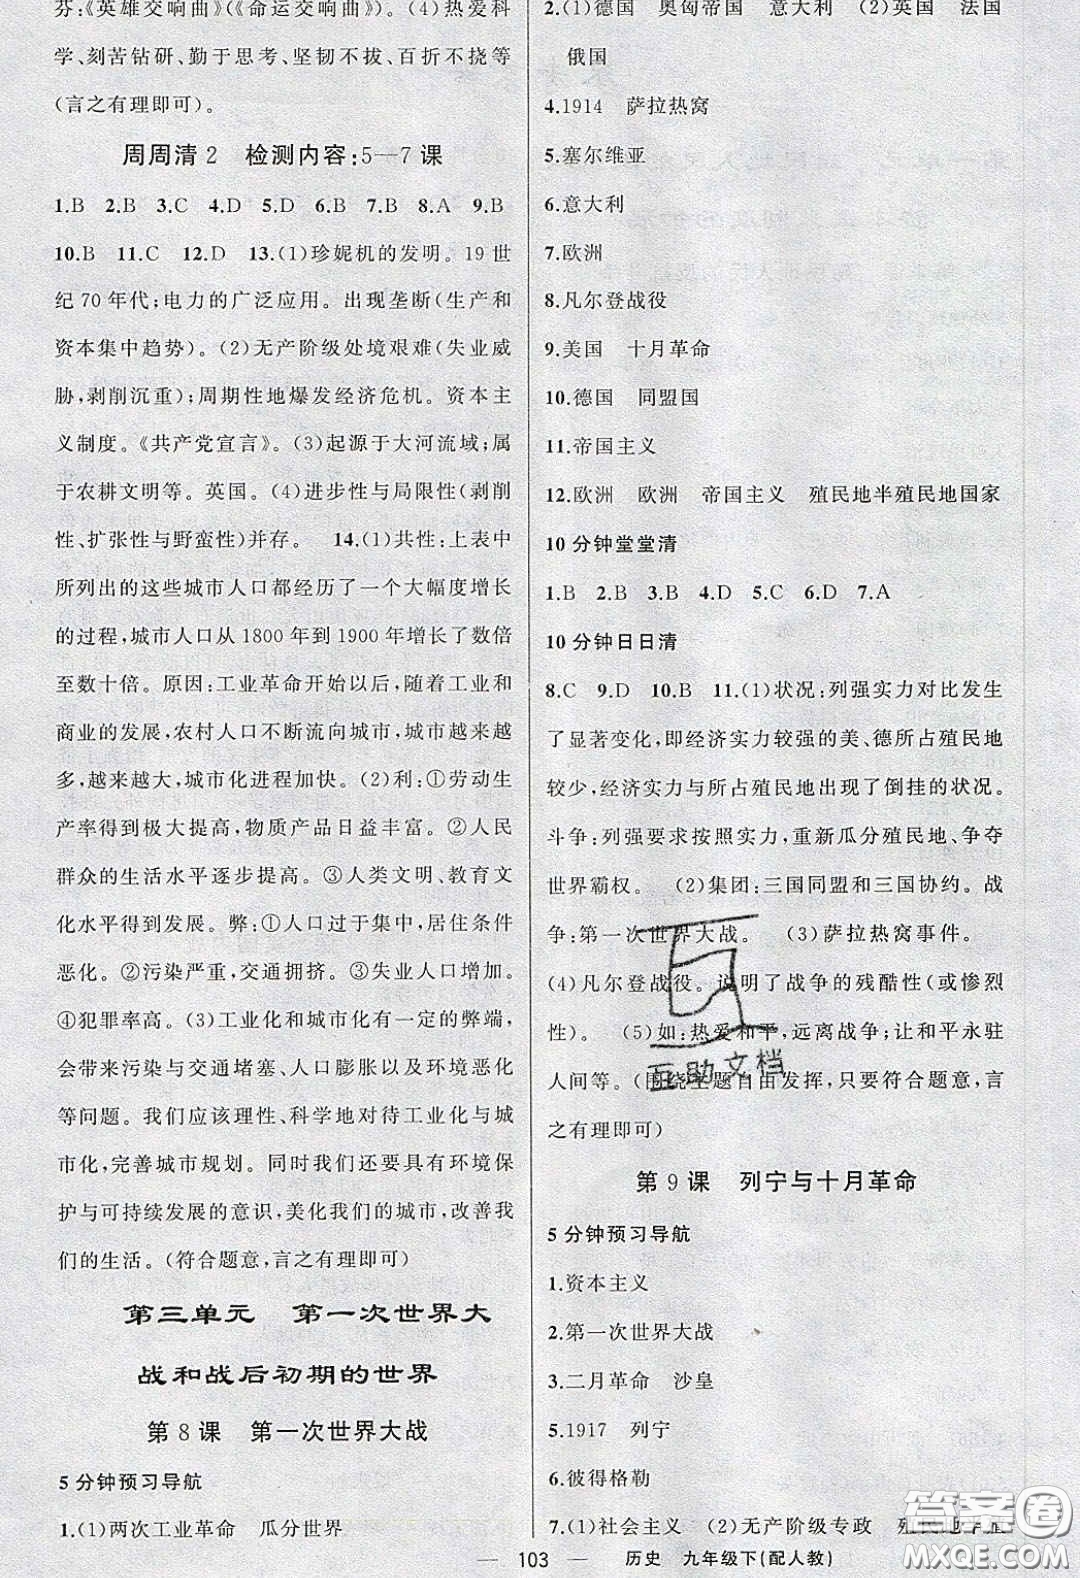 芬:《英雄交响曲》《命运交响曲》。(4)热爱科
学、刻苦钻研、勤于思考、坚韧不拔、百折不挠等
(言之有理即可)。
周周清2 检测内容:5—7课
1.B 2.B 3.C 4.D 5.D 6.B 7.B 8.A 9.B
10.B 11.C 12.D 13.(1)珍妮机的发明。19世
纪70年代;电力的广泛应用。出现垄断(生产和
资本集中趋势)。(2)无产阶级处境艰难(失业威
胁,剥削沉重);周期性地爆发经济危机。资本主
义制度。《共产党宣言》。(3)起源于大河流域;属
于农耕文明等。英国。(4)进步性与局限性(剥削
性、扩张性与野蛮性)并存。 14.(1)共性:上表中
所列出的这些城市人口都经历了一个大幅度增长
的过程,城市人口从1800年到1900年增长了数倍
至数十倍。原因:工业革命开始以后,随着工业和
商业的发展,农村人口不断流向城市,城市越来越
多,越来越大,城市化进程加快。(2)利:①劳动生
产率得到极大提高,物质产品日益丰富。②人民
群众的生活水平逐步提高。③人类文明、教育文
化水平得到发展。弊:①人口过于集中,居住条件
恶化。②污染严重,交通拥挤。③失业人口增加。
④犯罪率高。(3)工业化和城市化有一定的弊端,
会带来污染与交通堵塞、人口膨胀以及环境恶化
等问题。我们应该理性、科学地对待工业化与城
市化,完善城市规划。同时我们还要具有环境保
护与可持续发展的意识,美化我们的城市,改善我
们的生活。(符合题意,言之有理即可)
第三单元 第一次世界大
战和战后初期的世界
第8课 第一次世界大战
5分钟预习导航
1.(1)两次工业革命 瓜分世界
2.(1)德国 奥匈帝国 意大利 (2)英国 法国
俄国
4.1914 萨拉热窝
5.塞尔维亚
6.意大利
7.欧洲
8.凡尔登战役
9.美国 十月革命
10.德国 同盟国
11.帝国主义
12.欧洲 欧洲 帝国主义 殖民地半殖民地国家
10分钟堂堂清
1.B 2.B 3.B 4.D 5.C 6.D 7.A
10分钟日日清
8.C 9.D 10.B 11.(1)状况:列强实力对比发生
了显著变化,即经济实力较强的美、德所占殖民地
较少,经济实力与所占殖民地出现了倒挂的状况。
斗争:列强要求按照实力,重新瓜分殖民地、争夺
世界霸权。 (2)集团:三国同盟和三国协约。战
争:第一次世界大战。 (3)萨拉热窝事件。
(4)凡尔登战役。说明了战争的残酷性(或惨烈
性)。 (5)如:热爱和平,远离战争;让和平永驻
人间等。(围绕主题自由发挥,只要符合题意,言
之有理即可)
第9课 列宁与十月革命
5分钟预习导航
1.资本主义
2.第一次世界大战
3.二月革命 沙皇
5.1917 列宁
6.彼得格勒
7.(1)社会主义 (2)无产阶级专政 殖民地半殖
互助文档
答案圈
MXQE.COM
103
历史 九年级下(配人教)